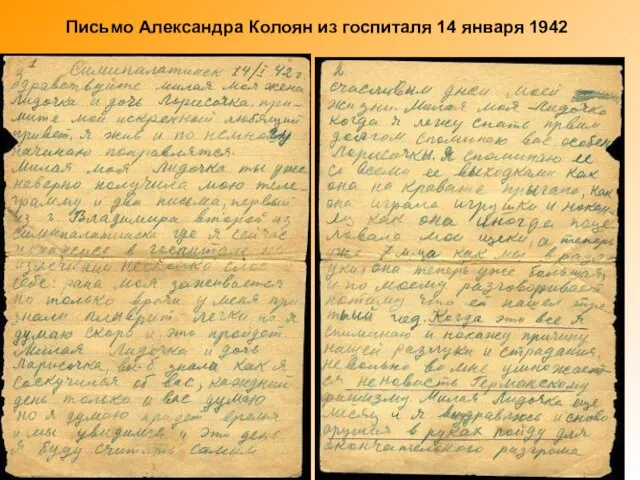 Письмо Александра Колоян из госпиталя 14 января 1942
г. Симипалатинск 14/I 42 г.
Здравствуйте милая моя жена
Лидочка и дочь Ларисочка, при-
мите мой искренный любящий
привет, я жив и по немногу
начинаю поправлятся.
Милая моя Лидочка ты уже
наверно получила мою теле-
грамму и два письма, первый
из г. Владимира второй из
Симипалатинска где я сейчас
нахожусе в госпитале
излечении несколко слов о
себе: рана моя заживается
но только врачи у меня при-
знали плеврит легки но я
думаю скоро и это пройдет
Милая Лидочка и дочь
Ларисочка, вы б знала как я
соскучился об вас, каждний
день только о вас думаю
но я думаю придет время
и мы увидимся и это день
я буду считать самым
2.
счасливым днем моей
жизни. Милая моя Лидочка
когда я ложу спать првим
долгом спотинаю вас особен
Ларисочки. Я спотинаю ее
со всеми ее выходками как
она на кравате прыгала, как
она играла игрушки и након
ец как она иногда поце
ловала мои щеки, а теперь
уже 7 м-ца как мы в разл
уки, она теперь уже большая
и по моему разговоривает
потаму что ей пашел тре
тьий год. Когда это все я
спотинаю и нахожу причину
нашей разлуки и страдания,
невольно во мне умножает-
ся неновисть Германскому
фашизму. Милая Лидочка еще
месяц и я выздравлюсь и снова
оружия в руках пойду для
окончателького разгрома